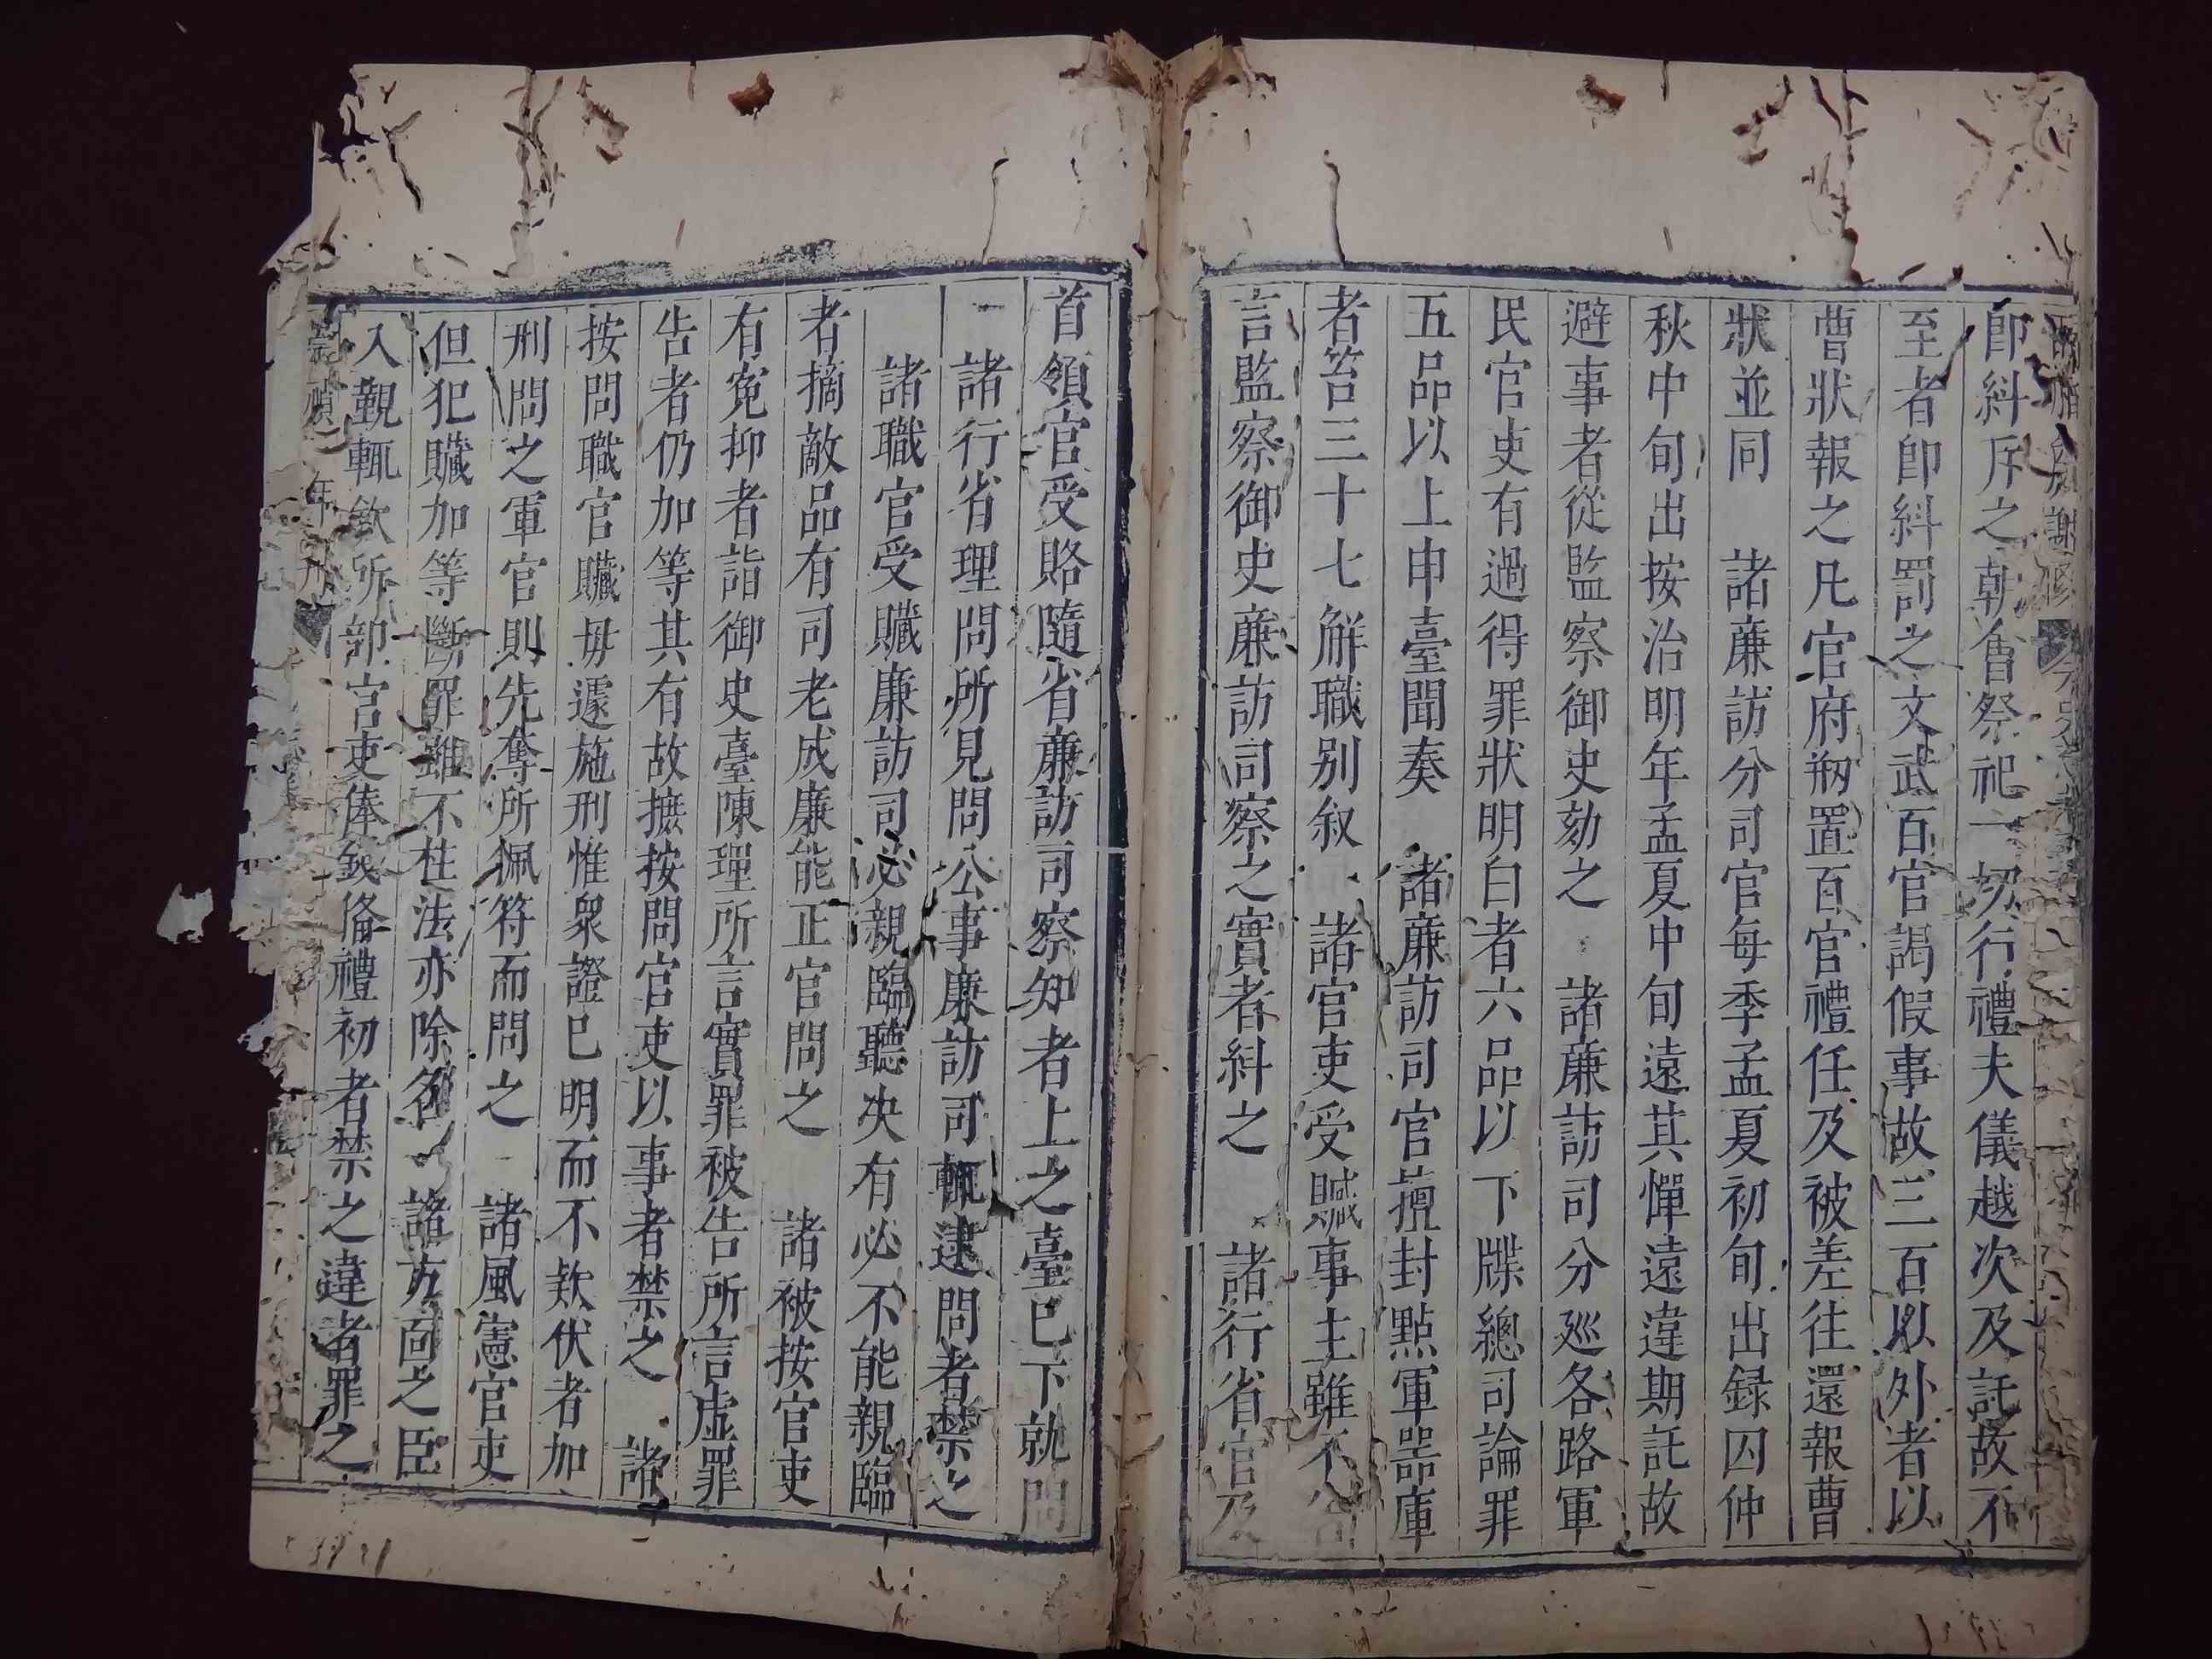 即糾斥之朝會祭祀一切行禮夫儀越次及託故不
至者即糾罰之文武百官謁假事故三百以外者以
曹狀報之凡官府剏置百官禮任及被差往還報曹
狀並同　諸廉訪分司官每季孟夏初旬出録囚仲
秋中旬出按治明年孟夏中旬還其憚遠違期託故
避事者從監察御史劾之　諸廉訪司分廵各路軍
民官吏有過得罪狀明白者六品以下牒總司論罪
五品以上申臺聞奏　諸廉訪司官擅封㸃軍器庫
者笞三十七解職别叙　諸官吏受贓事主雖不告
言監察御史廉訪司察之實者糾之　諸行省官及
首領官受賂隨省廉訪司察知者上之臺已下就問
一諸行省理問所見問公事廉訪司輒逮問者禁之
諸職官受贓廉訪司必親臨聽决有必不能親臨
者摘敵品有司老成廉能正官問之　諸被按官吏
有寃抑者詣御史臺陳理所言實罪被告所言虛罪
告者仍加等其有故摭按問官吏以事者禁之　諸
按問職官贓毋遽施刑惟衆證已明而不欵伏者加
刑問之軍官則先奪所佩符而問之　諸風憲官吏
但犯贓加等斷罪雖不枉法亦除名　諸方面之臣
入覲輒歛所部官吏俸錢俻禮初者禁之違者罪之
崇禎三年刊